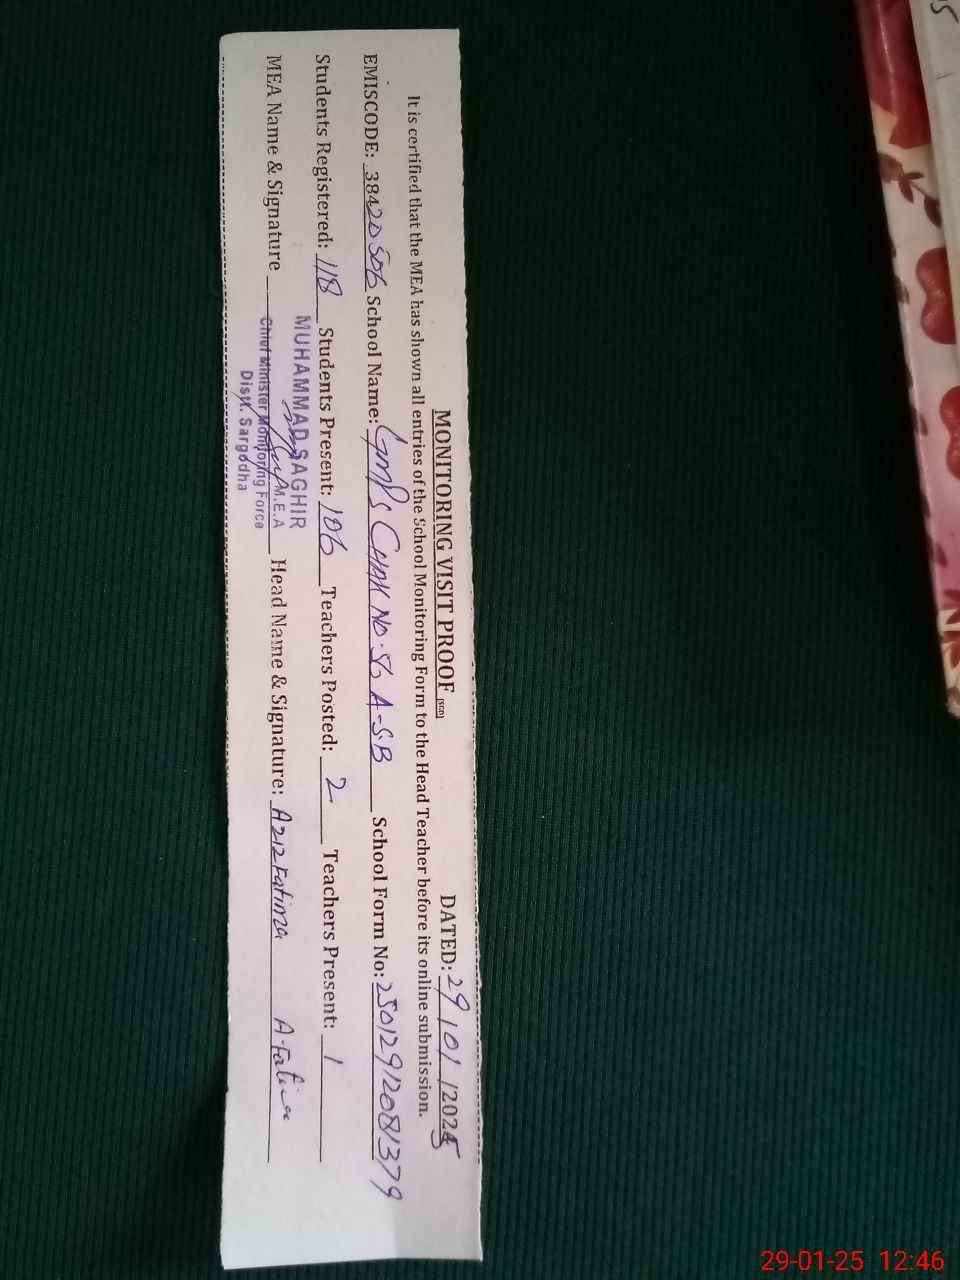 MONITORING VISIT PROOF (SGD) DATED: 29/01/2025
It is certified that the MEA has shown all entries of the School Monitoring Form to the Head Teacher before its online submission.
EMISCODE: 38420506 School Name: GMPS CHAK NO. 56 A-S.B School Form No: 25012912081379
Students Registered: 118 Students Present: 106 Teachers Posted: 2 Teachers Present: 1
MEA Name & Signature Head Name & Signature: Aziz Fatima A-Fatima
MUHAMMAD SAGHIR
M.E.A
Chief Minister Monitoring Force
Distt. Sargodha
29-01-25 12:46